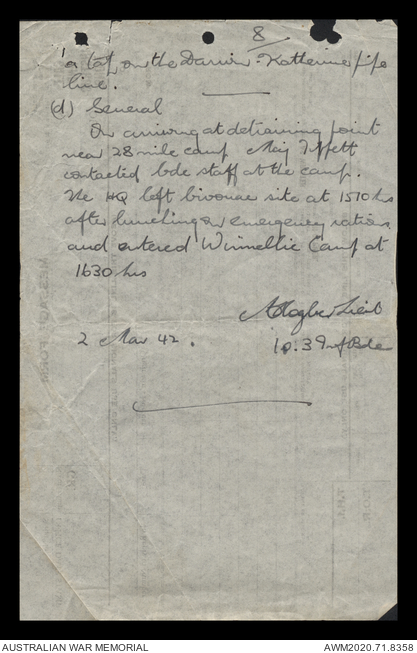 8
a tap on the Darwin-Katherine pipe
line.
(d) General
On arriving at detraining point
near 28 mile camp Maj Tippett
contacted bde staff at the camp.
The HQ left bivouac site at 1510 hs
after lunching on emergency rations
and entered Winnellie Camp at
1630 hrs
Lieut
2 Mar 42.
I.O. 3 Inf Bde
AUSTRALIAN WAR MEMORIAL
AWM2020.71.8358